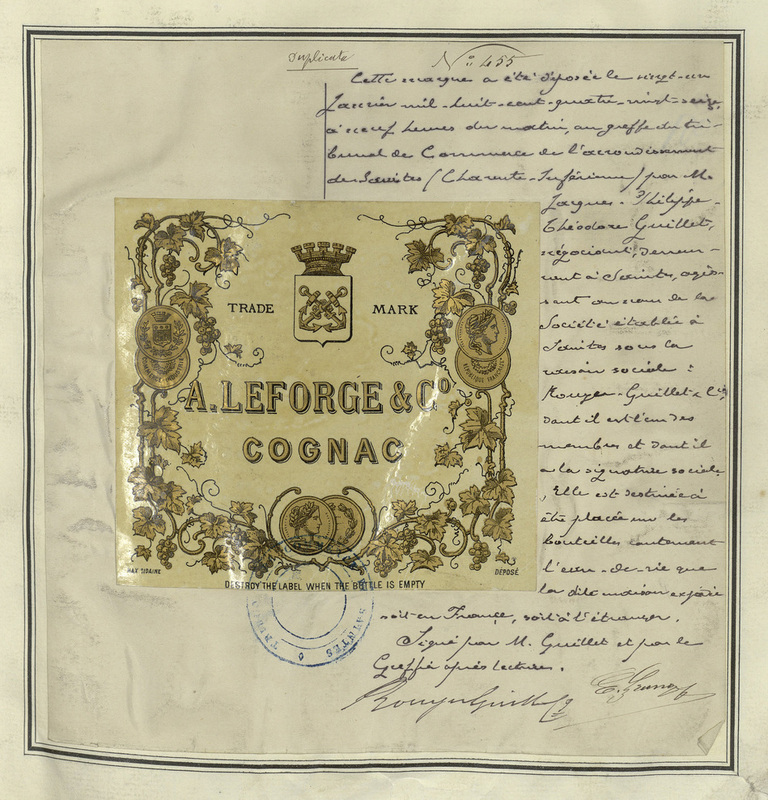 Duplicata
N° 455
Cette marque a été déposée le vingt-un
Janvier mil-huit-cent-quatre-vingt-seize,
à neuf heures du matin, au greffe du tri-
bunal de Commerce de l'arrondissement
de Saintes (Charente-Inférieure) par M.
Jacques-Philippe-
Théodore Guillet,
négociant, demeu-
rant à Saintes, agis-
sant au nom de la
Société établie à
Saintes sous la
raison sociale :
Rouyer-Guillet & Cie
dont il est l'un des
membres et dont il
a la signature sociale
, Elle est destinée à
être placée sur les
bouteilles contenant
l'eau-de-vie que
la dite maison expédie
soit en France, soit à l'étranger.
Signé par M. Guillet et par le
Greffier après lecture.
Rouyer Guillet
TRADE MARK
A. LEFORGE & Co
COGNAC
DÉPOSÉ
DESTROY THE LABEL WHEN THE BOTTLE IS EMPTY
SAINTES